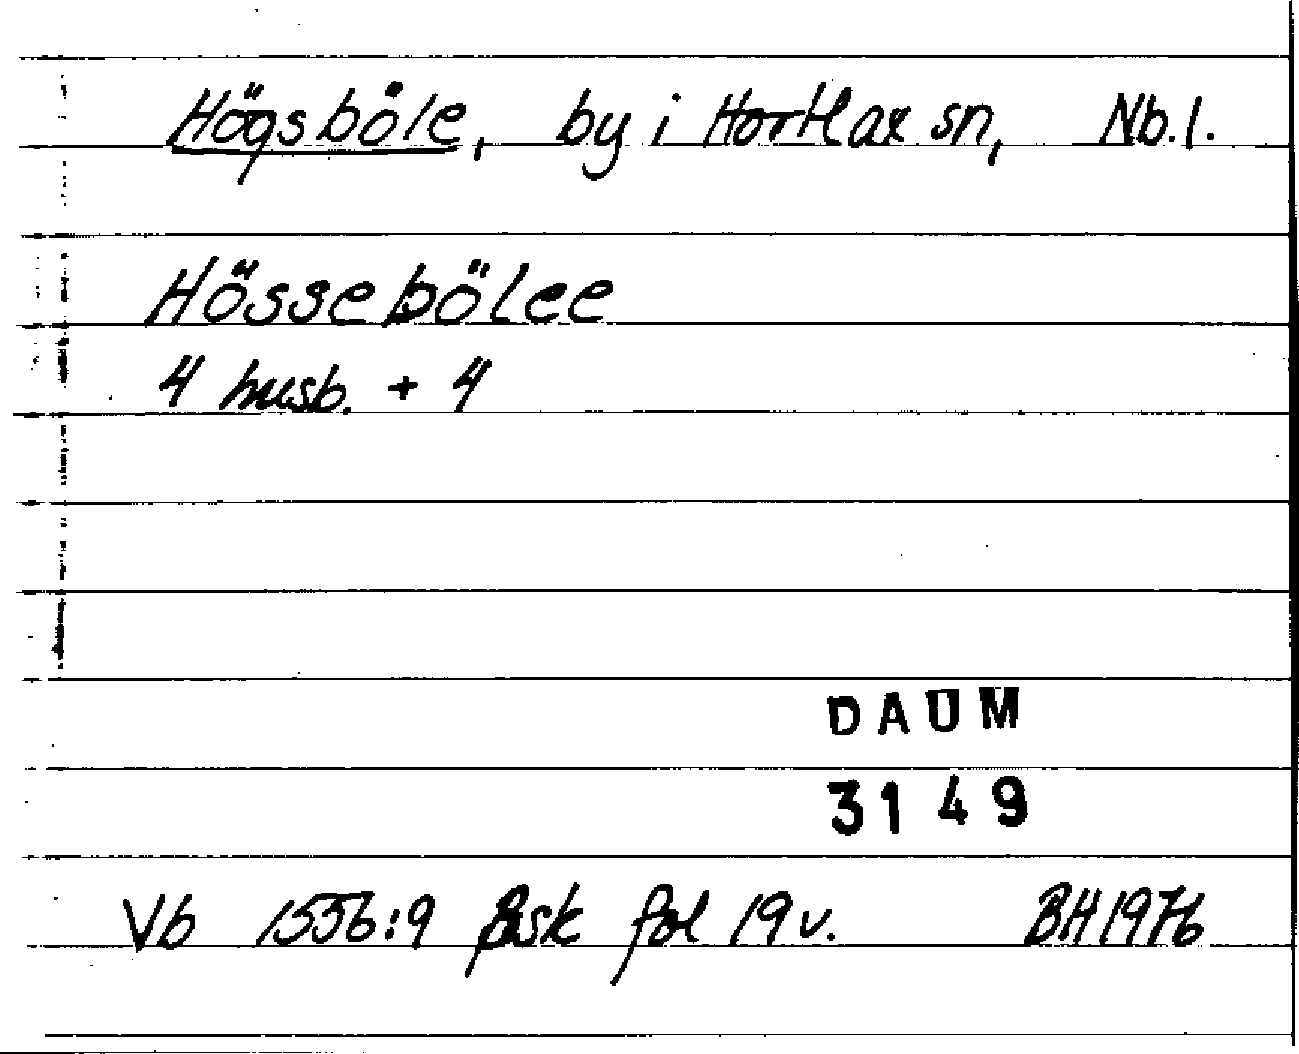 Högsböle, by i Hortlax sn, Nb.l.
Hössebölee
4 husb. + 4
DAUM
3149
Vb 1556:9 fol 19 v. BH 1976